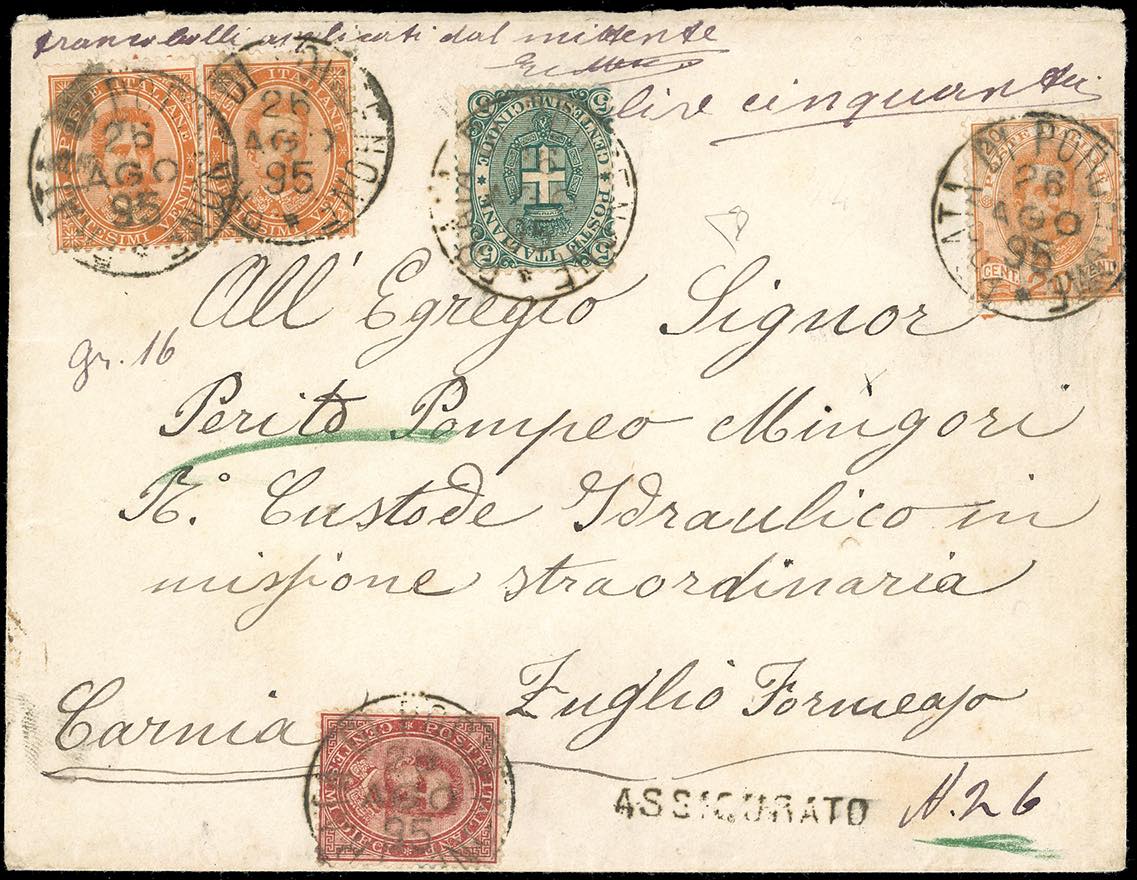 francobolli applicati dal mittente
lire cinquanta
POSTE ITALIANE
CENTESIMI VENTI
26 AGO 95
POSTE ITALIANE
CENTESIMI VENTI
26 AGO 95
5 POSTE ITALIANE 5
5 CENTESIMI CINQUE 5
POSTE
CENT. 20 VENTI
26 AGO 95
gr. 16
All' Egregio Signor
Perito Pompeo Mingori
R.° Custode Idraulico in
missione straordinaria
Carnia Zuglio Formeaso
POSTE ITALIANE
CENTESIMI DIECI
AGO 95
ASSICURATO
N. 26